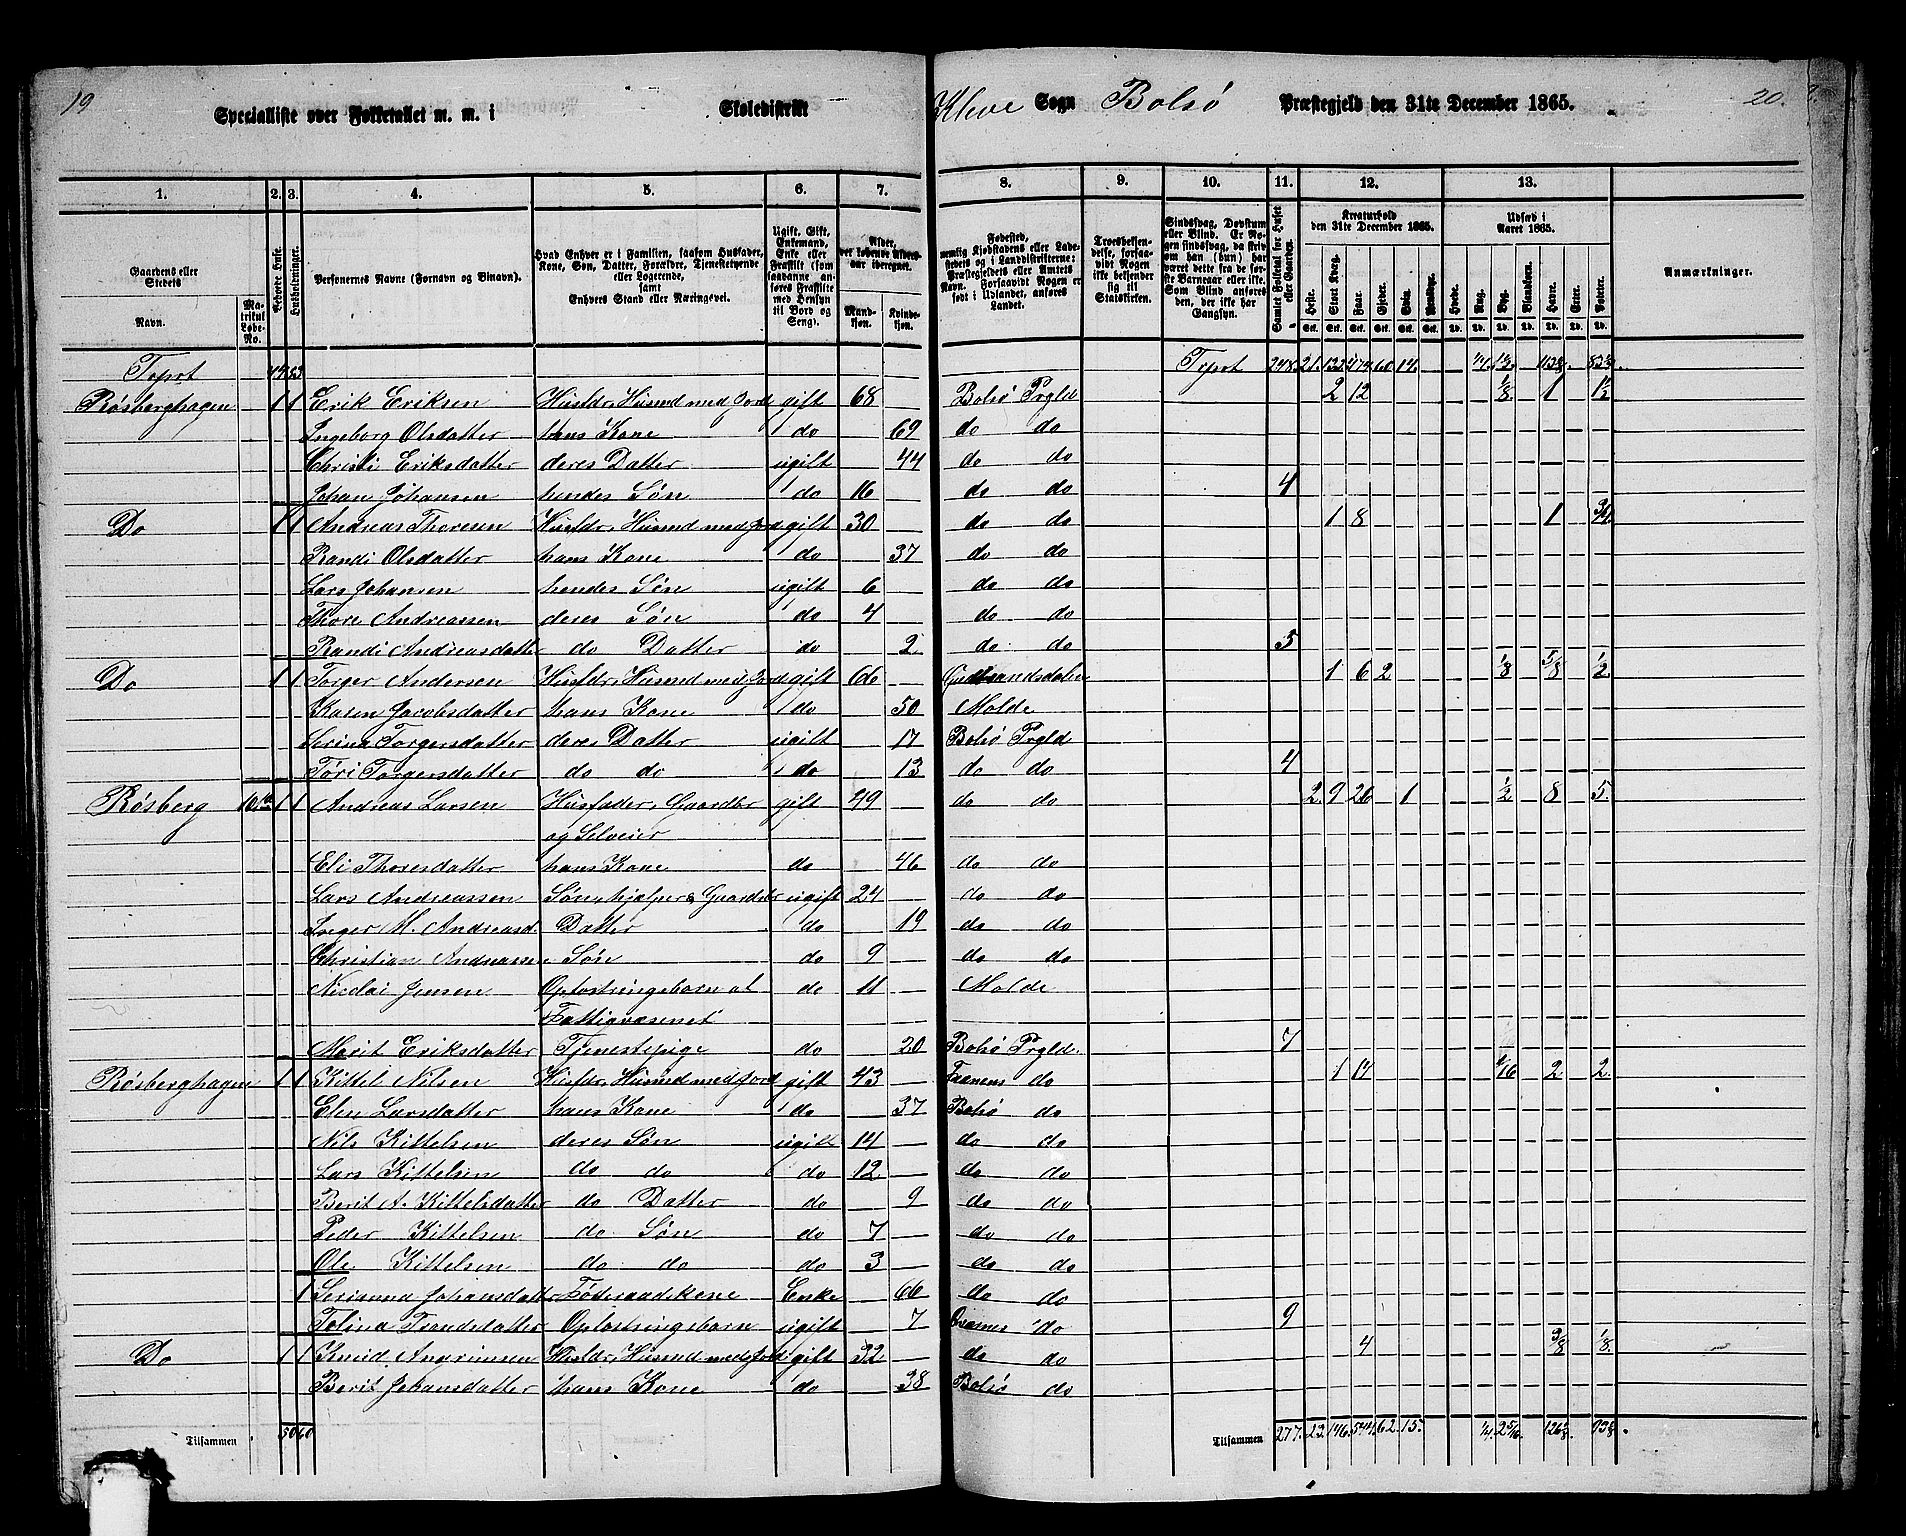 19
Specialliste over Folketallet m. m. i Skoledistrikt Kleve Sogn Bolsø Præstegjeld den 31te December 1865. 20.
1. 2. 3. 4. 5. 6. 7. 8. 9. 10. 11. 12. 13.
Gaardens eller Stedets Navn.
Matrikul Løbe-No.
Beboede Huse.
Husholdninger.
Personernes Navne (Fornavn og Tilnavn).
Hvad Enhver er i Familien, saasom Husfader, Kone, Søn, Datter, Forældre, Tjenestetyende eller Logerende, samt Enhvers Stand eller Næringsvei.
Ugift, Gift, Enkemand, Enke eller Fraskilt (som saadanne anføres Fraskilte med Hensyn til Bord og Seng).
Alder, det løbende Aldersaar iberegnet.
Mandkjøn. Kvindekjøn.
Fødested, nemlig Kjøbstadens eller Ladestedets og i Landdistrikterne: Præstegjeldets eller Amtets Navn. Forsaavidt Nogen er født i Udlandet, anføres Landet.
Troesbekjendelse, forsaavidt Nogen ikke bekjender sig til Statskirken.
Sindssvag, Døvstum eller Blind. Er Nogen sindssvag, da skrives om han (hun) har været dette fra de første Barneaar eller ikke. Som Blind anføres den, der ikke har Gangsyn.
Samlet Folketal for Huset eller Gaarden.
Kreaturhold den 31te December 1865.
Heste. Stort Kvæg. Faar. Gjeder. Sviin. Rensdyr.
Udsæd i Aaret 1865.
Hvede. Rug. Byg. Blandkorn. Havre. Erter. Poteter.
Anmærkninger.
Trprt Trprt 248.
Røsberghagen 1 1 Erik Eriksen Husfdr, Husmd med Jord gift 68 Bolsø Prgld 2 12 1/8 1 1½
Ingeborg Olsdatter hans Kone do 69 do do
Christi Eriksdatter deres Datter ugift 44 do do
Johan Johansen hendes Søn do 16 do do 4
Do 1 1 Andreas Thoresen Husfdr, Husmd med Jord gift 30 do do 1 8 1 3/4
Randi Olsdatter hans Kone do 37 do do
Lars Johansen hendes Søn ugift 6 do do
Thore Andreassen deres Søn do 4 do do
Randi Andreasdatter do Datter do 2 do do 5
Do 1 1 Torger Andersen Husfdr, Husmd med Jord gift 66 Gudbrandsdalen 1 6 2 1/8 5/8 1/2
Karen Jacobsdatter hans Kone do 50 Molde
Serina Torgersdatter deres Datter ugift 17 Bolsø Prgld
Tøri Torgersdatter do do do 13 do do 4
Røsberg 1 1 Andreas Larsen Husfader, Gaardbr gift 49 do do 2 9 26 1 1/2 8 5.
og Selveier
Eli Thoresdatter hans Kone do 46 do do
Lars Andreassen Søn, hjælper &amp; Gaardsbr ugift 24 do do
Inger M. Andreasd. Datter do 19 do do
Christian Andreassen Søn do 9 do do
Nicolai Jensen Opfostringsbarn af do 11 Molde
Fattigvæsenet
Marit Eriksdatter Tjenestepige do 20 Bolsø Prgld. 7
Røsberghagen 1 1 Kittel Nilsen Husfdr, Husmd med Jord gift 43 do 1 2 2
Elen Larsdatter hans Kone do 37 Bolsø do
Nils Kittelsen deres Søn ugift 14 do do
Lars Kittelsen do do do 12 do do
Berit A. Kittelsdatter do Datter do 9 do do
Peder Kittelsen do Søn do 7 do do
Ole Kittelsen do do do 3 do do
1 Serianna Johansdatter Føderaadskone Enke 66 do do
Tolina Trondsdatter Opfostringsbarn ugift 7 do 9
Do 1 1 Knud Husfdr, Husmd med Jord gift 32 do do 4 3/8 1/8
Berit Johansdatter hans Kone do 38 Bolsø do
Tilsammen 50 60 Tilsammen 277. 23. 146. 541. 62. 15. 1/4. 2 5/16